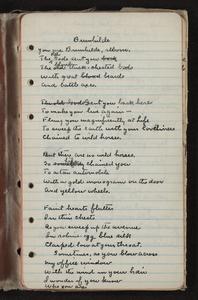 Brunhilde
You are Brunhilde, reborn.
The Gods sent you back
The old thick-chested Gods
With great beards
And battle axes.
sent you back here
To make you live again —
Flung you magnificently at life
To sweep the earth with your loveliness
Chained to wild horses.
But there are no wild horses.
So chained you
To action automobile
With a gold monogram on the door
And yellow wheels.
Faint hearts flutter
In thin chests
As you sweep up the avenue
In robin's egg blue silk
Clasped low at your throat.
Sometimes, as you blow across
my office window
With the wind in your hair
I wonder if you know
Who you are